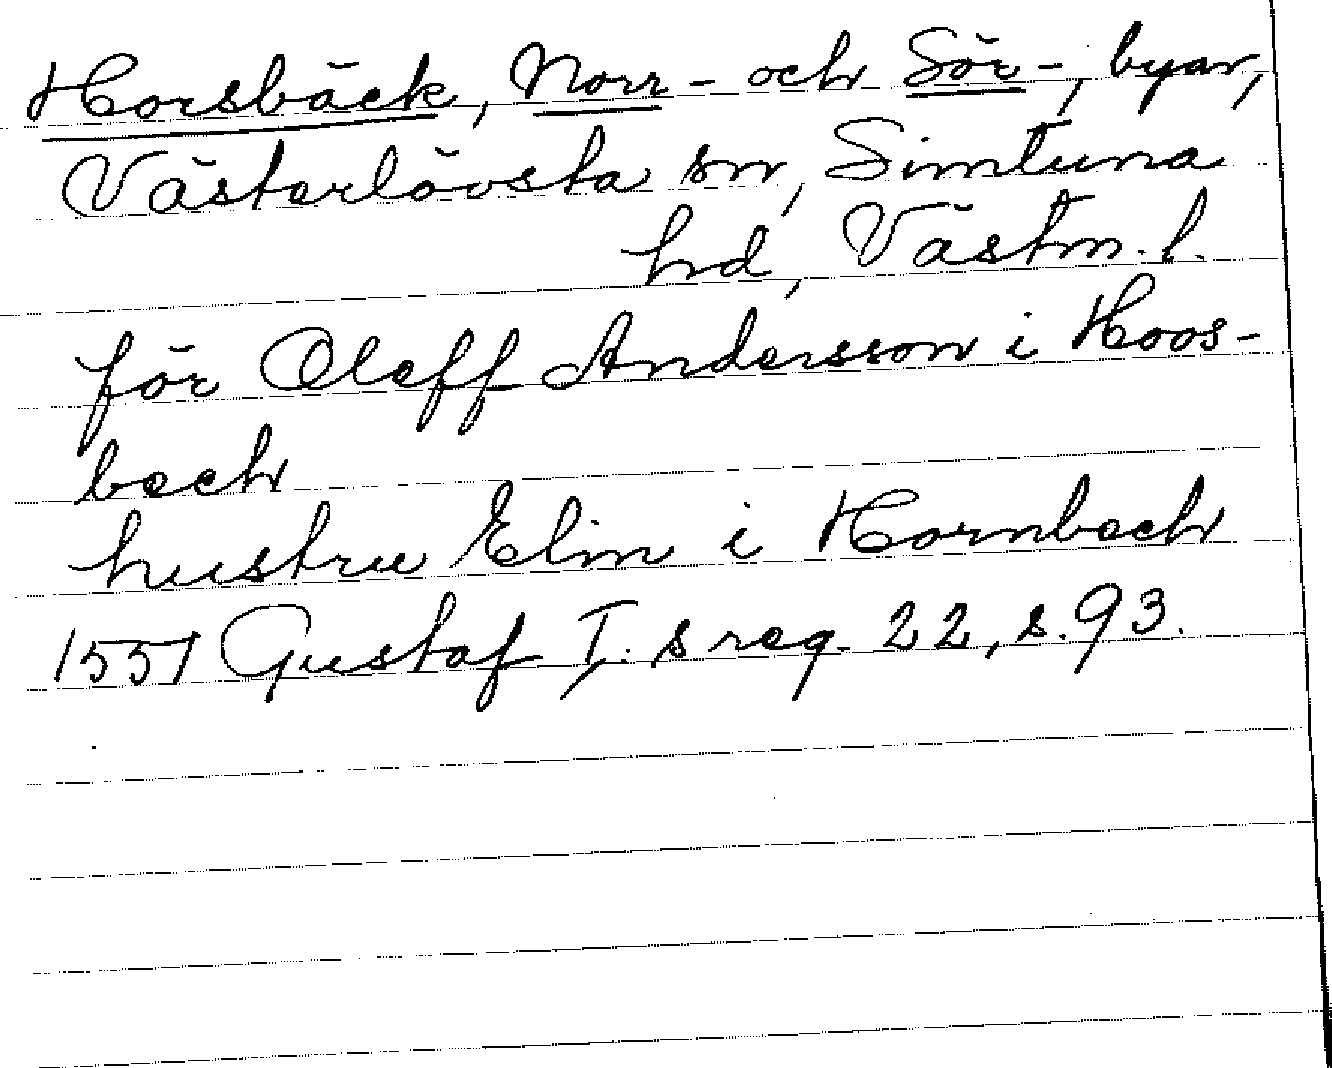 Horsbäck, Norr- och Sör-, byar,
Västerlövsta sn, Simtuna
hd, Västm. l.
för Oleff Andersson i Hoos-
beck
hustru Elin i Hornbeck
1557 Gustaf I:s reg. 22, s. 93.